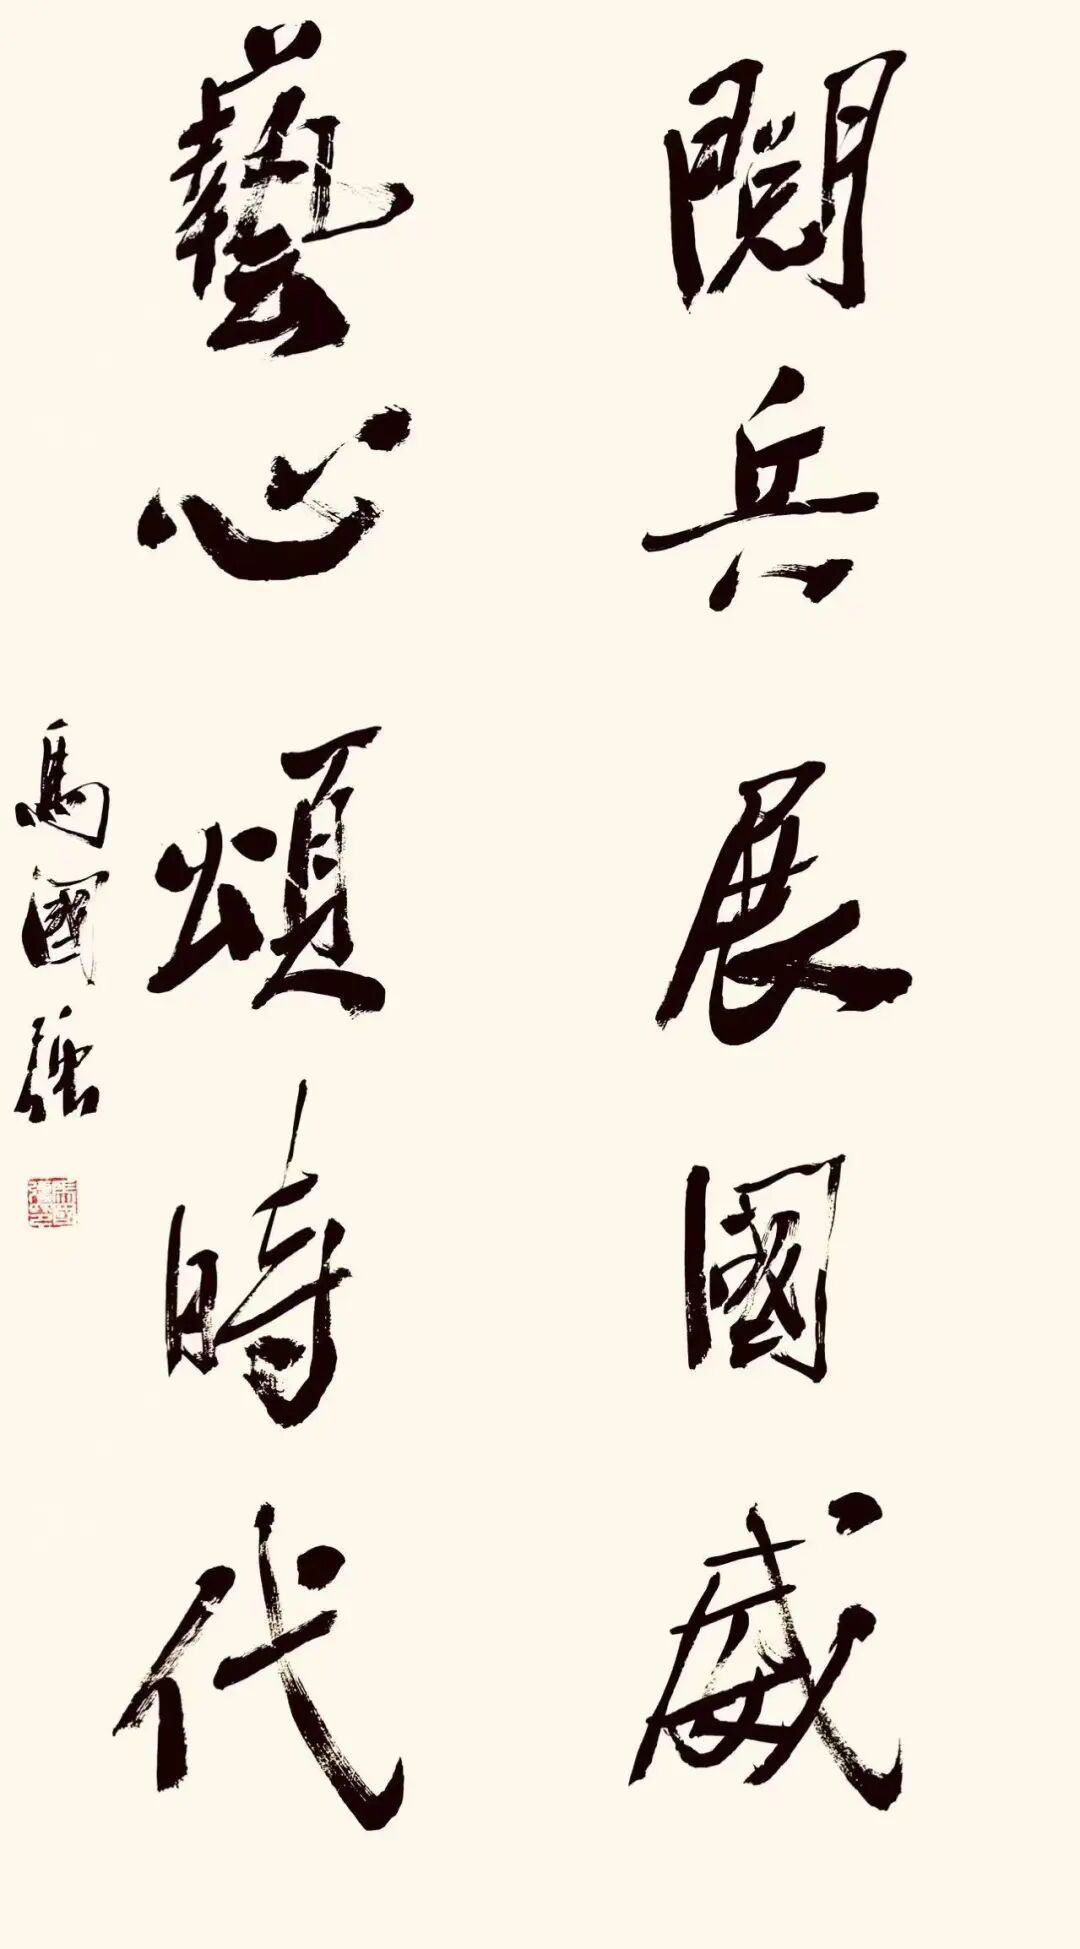 閱兵展國威
藝心頌時代
馬國強